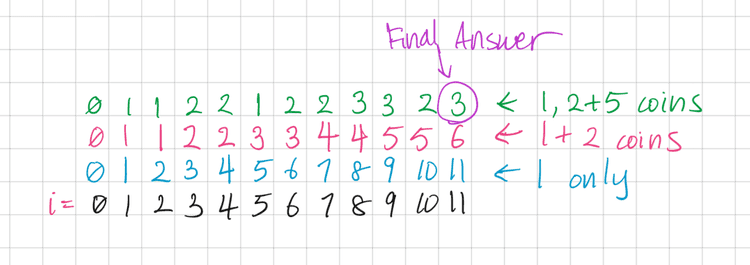 Final Answer
0 1 1 2 2 1 2 2 3 3 2 3 ← 1, 2+5 coins
0 1 1 2 2 3 3 4 4 5 5 6 ← 1+2 coins
0 1 2 3 4 5 6 7 8 9 10 11 ← 1 only
i= 0 1 2 3 4 5 6 7 8 9 10 11